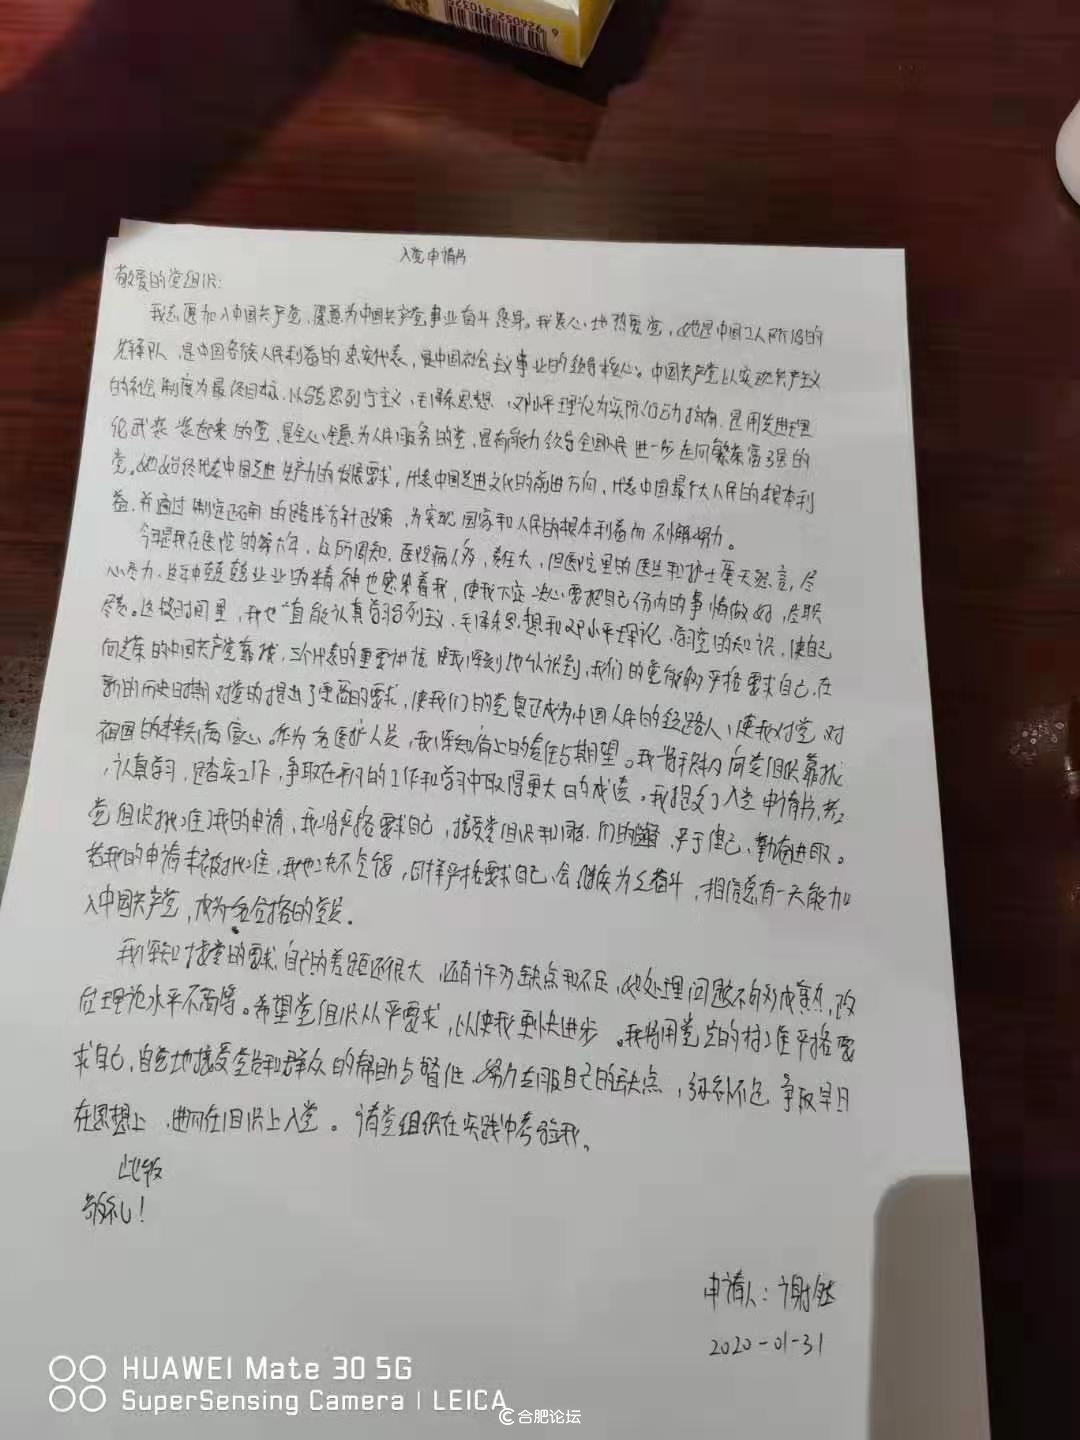 6 926052 310325
入党申请书
敬爱的党组织:
我志愿加入中国共产党,愿意为中国共产党事业奋斗终身。我衷心地热爱党,她是中国工人阶级的
先锋队,是中国各族人民利益的忠实代表,是中国社会主义事业的领导核心。中国共产党以实现共产主义
的社会制度为最终目标,以马克思列宁主义、毛泽东思想、邓小平理论为实际行动指南,是用先进理
论武装起来的党,是全心全意为人民服务的党,是有能力领导全国人民进一步走向繁荣富强的
党。她始终代表中国先进生产力的发展要求,代表中国先进文化的前进方向,代表中国最广大人民的根本利
益,并通过制定正确的路线方针政策,为实现国家和人民的根本利益而不懈努力。
今年是我在医院的第六年,众所周知,医院病人多,责任大,但医院里的医生和护士
心尽力,兢兢业业的精神也感染着我,使我下定决心要把自己份内的事情做好,尽职
尽责。这段时间里,我也一直能认真学习马列主义、毛泽东思想和邓小平理论,学习党的知识,使自己
向光荣的中国共产党靠拢,三个代表的重要讲话使我深刻地认识到,我们的党能够严格要求自己,在
新的历史时期对党的提出了更高的要求,使我们的党真正成为中国人民的领路人,使我对党、对
祖国的未来充满信心。作为一名医护人员,我深知肩上的责任与期望。我将积极向党组织靠拢
,认真学习,踏实工作,争取在平凡的工作和学习中取得更大的成绩。我提交了入党申请书,若
党组织批准了我的申请,我将严格要求自己,接受党组织和同志们的监督,严于律己、勤奋进取。
若我的申请未被批准,我也决不气馁,同样严格要求自己,会继续为之奋斗,相信总有一天能加
入中国共产党,成为一名合格的党员。
我深知按党的要求,自己的差距还很大,还有许多缺点和不足,如处理问题不够成熟,政
治理论水平不高等。希望党组织从严要求,以使我更快进步。我将用党员的标准严格要
求自己,自觉地接受党员和群众的帮助与督促,努力克服自己的缺点,弥补不足,争取早日
在思想上,进而在组织上入党。请党组织在实践中考验我。
此致
敬礼!
申请人:谢
2020-01-31
HUAWEI Mate 30 5G
SuperSensing Camera | LEICA
合肥论坛